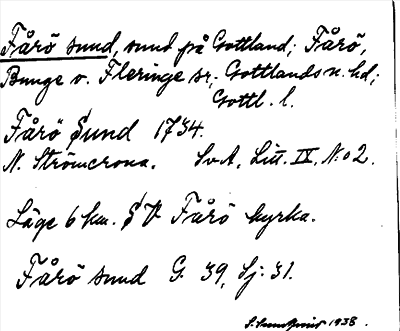 Fårö sund, sund på Gottland; Fårö,
Bunge o. Fleringe sr; Gottlands n. hd;
Gottl. l.
Fårö Sund 1734.
N. Strömcrona. SvA, Litt. IX, N:o 2.
Läge 6 km. S V Fårö kyrka.
Fårö sund G. 39, Sj: 31.
1938.